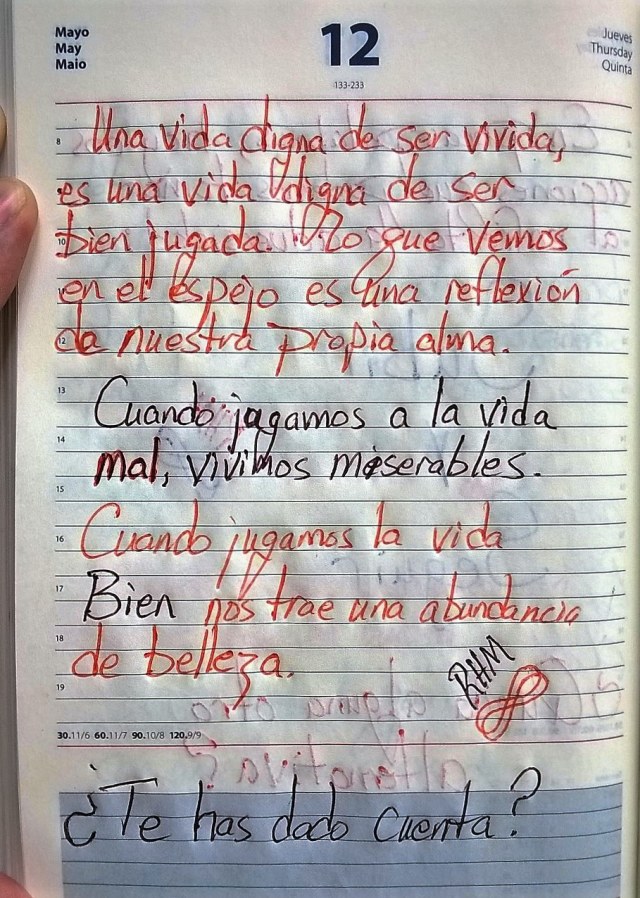 Mayo
May
Maio
12
133-233
Jueves
Thursday
Quinta
8
Una vida digna de ser vivida,
es una vida digna de ser
10
bien jugada. Lo que vemos
en el espejo es una reflexión
12
de nuestra propia alma.
13
Cuando jugamos a la vida
14
mal, vivimos miserables.
15
16
Cuando jugamos la vida
17
Bien nos trae una abundancia
18
de belleza.
RHM
19
30.11/6 60.11/7 90.10/8 120.9/9
¿Te has dado cuenta?